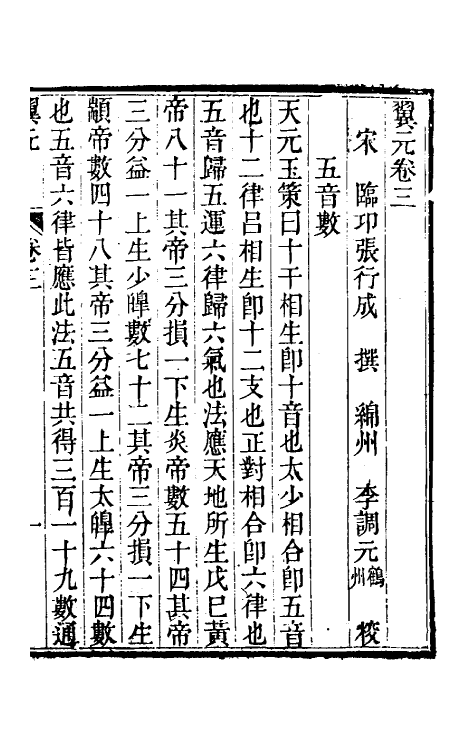 翼元卷三
宋 臨邛張行成 撰 綿州 李調元鶴州 校
五音數
天元玉策曰十干相生卽十音也太少相合卽五音
也十二律呂相生卽十二支也正對相合卽六律也
五音歸五運六律歸六氣也法應天地所生戊巳黃
帝八十一其帝三分損一下生炎帝數五十四其帝
三分益一上生少皡數七十二其帝三分損一下生
顓帝數四十八其帝三分益一上生太皡六十四數
也五音六律皆應此法五音共得三百一十九數通
翼元 卷三 一